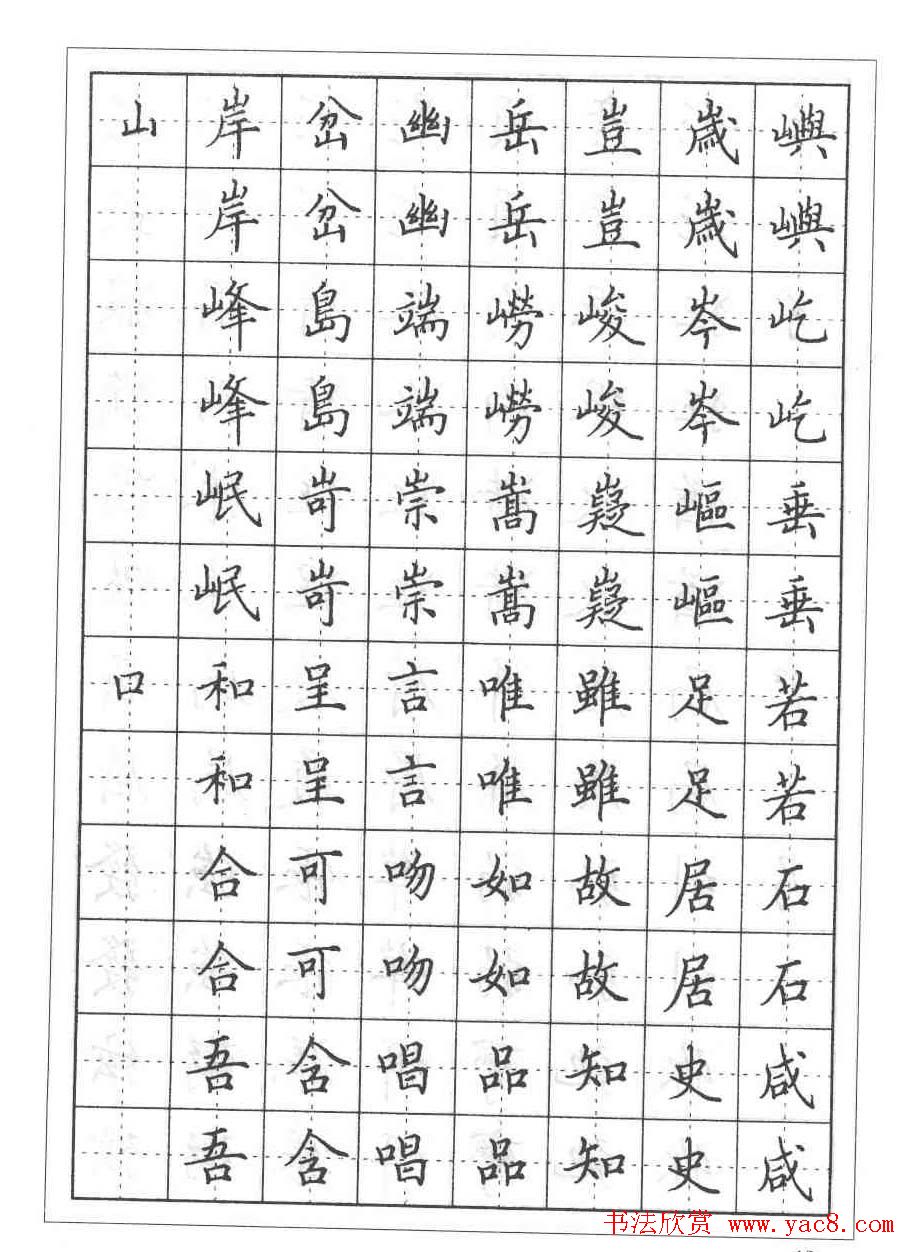 山岸岔幽岳豈歲嶼
岸岔幽岳豈歲嶼
峰島端嶗峻岑屹
峰島端嶗峻岑屹
岷岢崇嵩嶷嶇垂
岷岢崇嵩嶷嶇垂
口和呈言唯雖足若
和呈言唯雖足若
合可吻如故居石
合可吻如故居石
吾含唱品知史咸
吾含唱品知史咸
书法欣赏 www.yac8.com